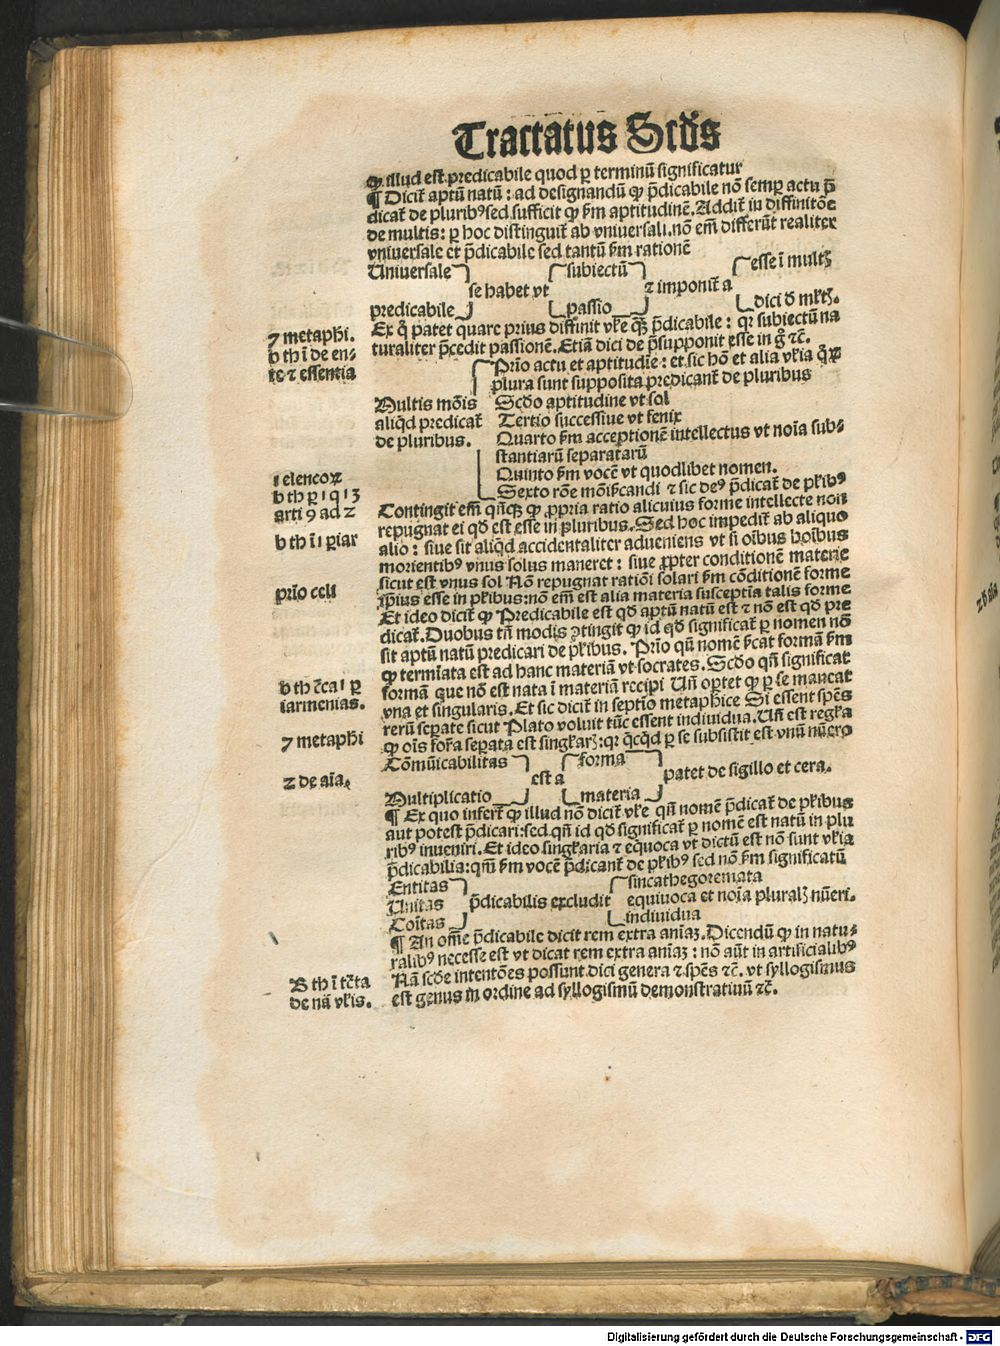 Tractatus Scd̄s
ꝙ illud est predicabile quod ꝑ terminū significatur
¶ Dicit̄ aptū natū : ad designandū ꝙ p̄dicabile nō semꝑ actu p̄
dicat̄ de pluribꝰ sed sufficit ꝙ ẜm aptitudinē. Addit̄ in diffinitōe
de multis : ꝑ hoc distinguit̄ ab vniuersali. nō em̄ differūt realiter
vniuersale et p̄dicabile sed tantū ẜm rationē
Uniuersale subiectū esse ī multꝭ
se habet vt ⁊ imponit̄ a
predicabile passio dici d̄ ml̄tꝭ.
Ex q̄ patet quare prius diffinit vl̄e qꝫ p̄dicabile : qꝛ subiectū na
turaliter p̄cedit passionē. Etiā dici de p̄supponit esse in ⁊c̄.
7 metaphi.
b th ī de en-
te ⁊ essentia
Prīo actu et aptitudīe : et sic hō et alia vl̄ia qꝝ
plura sunt supposita predicant̄ de pluribus
Multis mōis Scd̄o aptitudine vt sol
aliqd̄ predicat̄ Tertio successiue vt fenix
de pluribus. Quarto ẜm acceptionē intellectus vt noīa sub-
stantiarū separatarū
Quinto ẜm vocē vt quodlibet nomen.
Sexto rōe mōi ⁊ sic deꝰ p̄dicat̄ de pl̄ibꝰ
1 elencoꝝ
b th ꝑ 1 q 13
arti 9 ad 2
Contingit em̄ qn̄qꝫ ꝙ ꝓpria ratio alicuius forme intellecte non
repugnat ei qd̄ est esse in pluribus. Sed hoc impedit̄ ab aliquo
alio : siue sit aliqd̄ accidentaliter adueniens vt si oībus hoībus
morientibꝰ vnus solus maneret : siue ꝓpter conditionē materie
b th ī 1 ꝑiar
sicut est vnus sol Nō repugnat ratiōi solari ẜm cōditionē forme
ip̄ius esse in pl̄ibus : nō em̄ est alia materia susceptīa talis forme
prīo celi
Et ideo dicit̄ ꝙ Predicabile est qd̄ aptū natū est ⁊ nō est qd̄ pre
dicat̄. Duobus tn̄ modis ꝯtingit ꝙ id qd̄ significat̄ ꝑ nomen nō
sit aptū natū predicari de pl̄ibus. Prīo qn̄ nomē ẜicat formā ẜm
ꝙ termīata est ad hanc materiā vt socrates. Scd̄o qn̄ significat
formā que nō est nata ī materiā recipi Un̄ oꝑtet ꝙ ꝑ se maneat
vna et singularis. Et sic dicit̄ in septīo metaphice Si essent spēs
rerū seꝑate sicut Plato voluit tūc essent indiuidua. Un̄ est regl̄a
ꝙ oīs for̄a seꝑata est singl̄arꝭ : qꝛ qcqd̄ ꝑ se subsistit est vnū nūero
b th
iarmenias.
7 metaphi
2 de aīa.
Cōmūicabilitas forma
est a patet de sigillo et cera.
Multiplicatio materia
¶ Ex quo infert̄ ꝙ illud nō dicit̄ vl̄e qn̄ nomē p̄dicat̄ de pl̄ibus
aut potest p̄dicari : sed qn̄ id qd̄ significat̄ ꝑ nomē est natū in plu
ribꝰ inueniri. Et ideo singl̄aria ⁊ equoca vt dictū est nō sunt vl̄ia
p̄dicabilia : qm̄ ẜm vocē p̄dicant̄ de pl̄ibꝰ sed nō ẜm significatū
Entitas sincathegoremata
Unitas p̄dicabilis excludit equiuoca et noīa pluralꝭ nūeri.
Coītas indiuidua
¶ An om̄e p̄dicabile dicit rem extra anīaꝫ. Dicendū ꝙ in natu-
ralibꝰ necesse est vt dicat rem extra anīaꝫ : nō aūt in artificialibꝰ
Nā scd̄e intentōes possunt dici genera ⁊ spēs ⁊c̄. vt syllogismus
est genus in ordine ad syllogismū demonstratiuū ⁊c̄.
B th ī tc̄ta
de nā vl̄is.
Digitalisierung gefördert durch die Deutsche Forschungsgemeinschaft - DFG